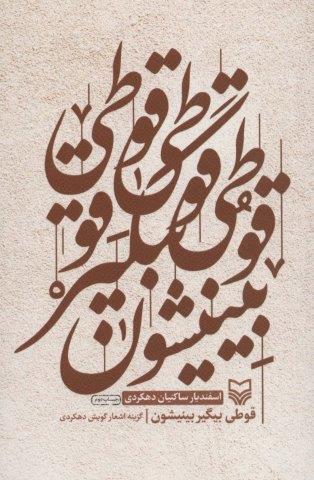 قوطی قوطی
قوطی قوطی
قوطی بیگیر
بینیشون
اسفندیار ساکنیان دهکردی
چاپ دوم
قوطی بیگیر بینیشون | گزینه اشعار گویش دهکردی